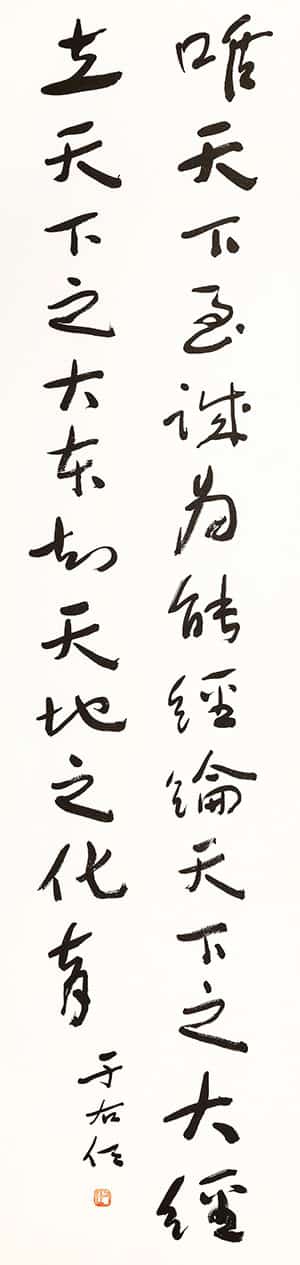 唯天下至誠為能經綸天下之大經
立天下之大本知天地之化育
于右任